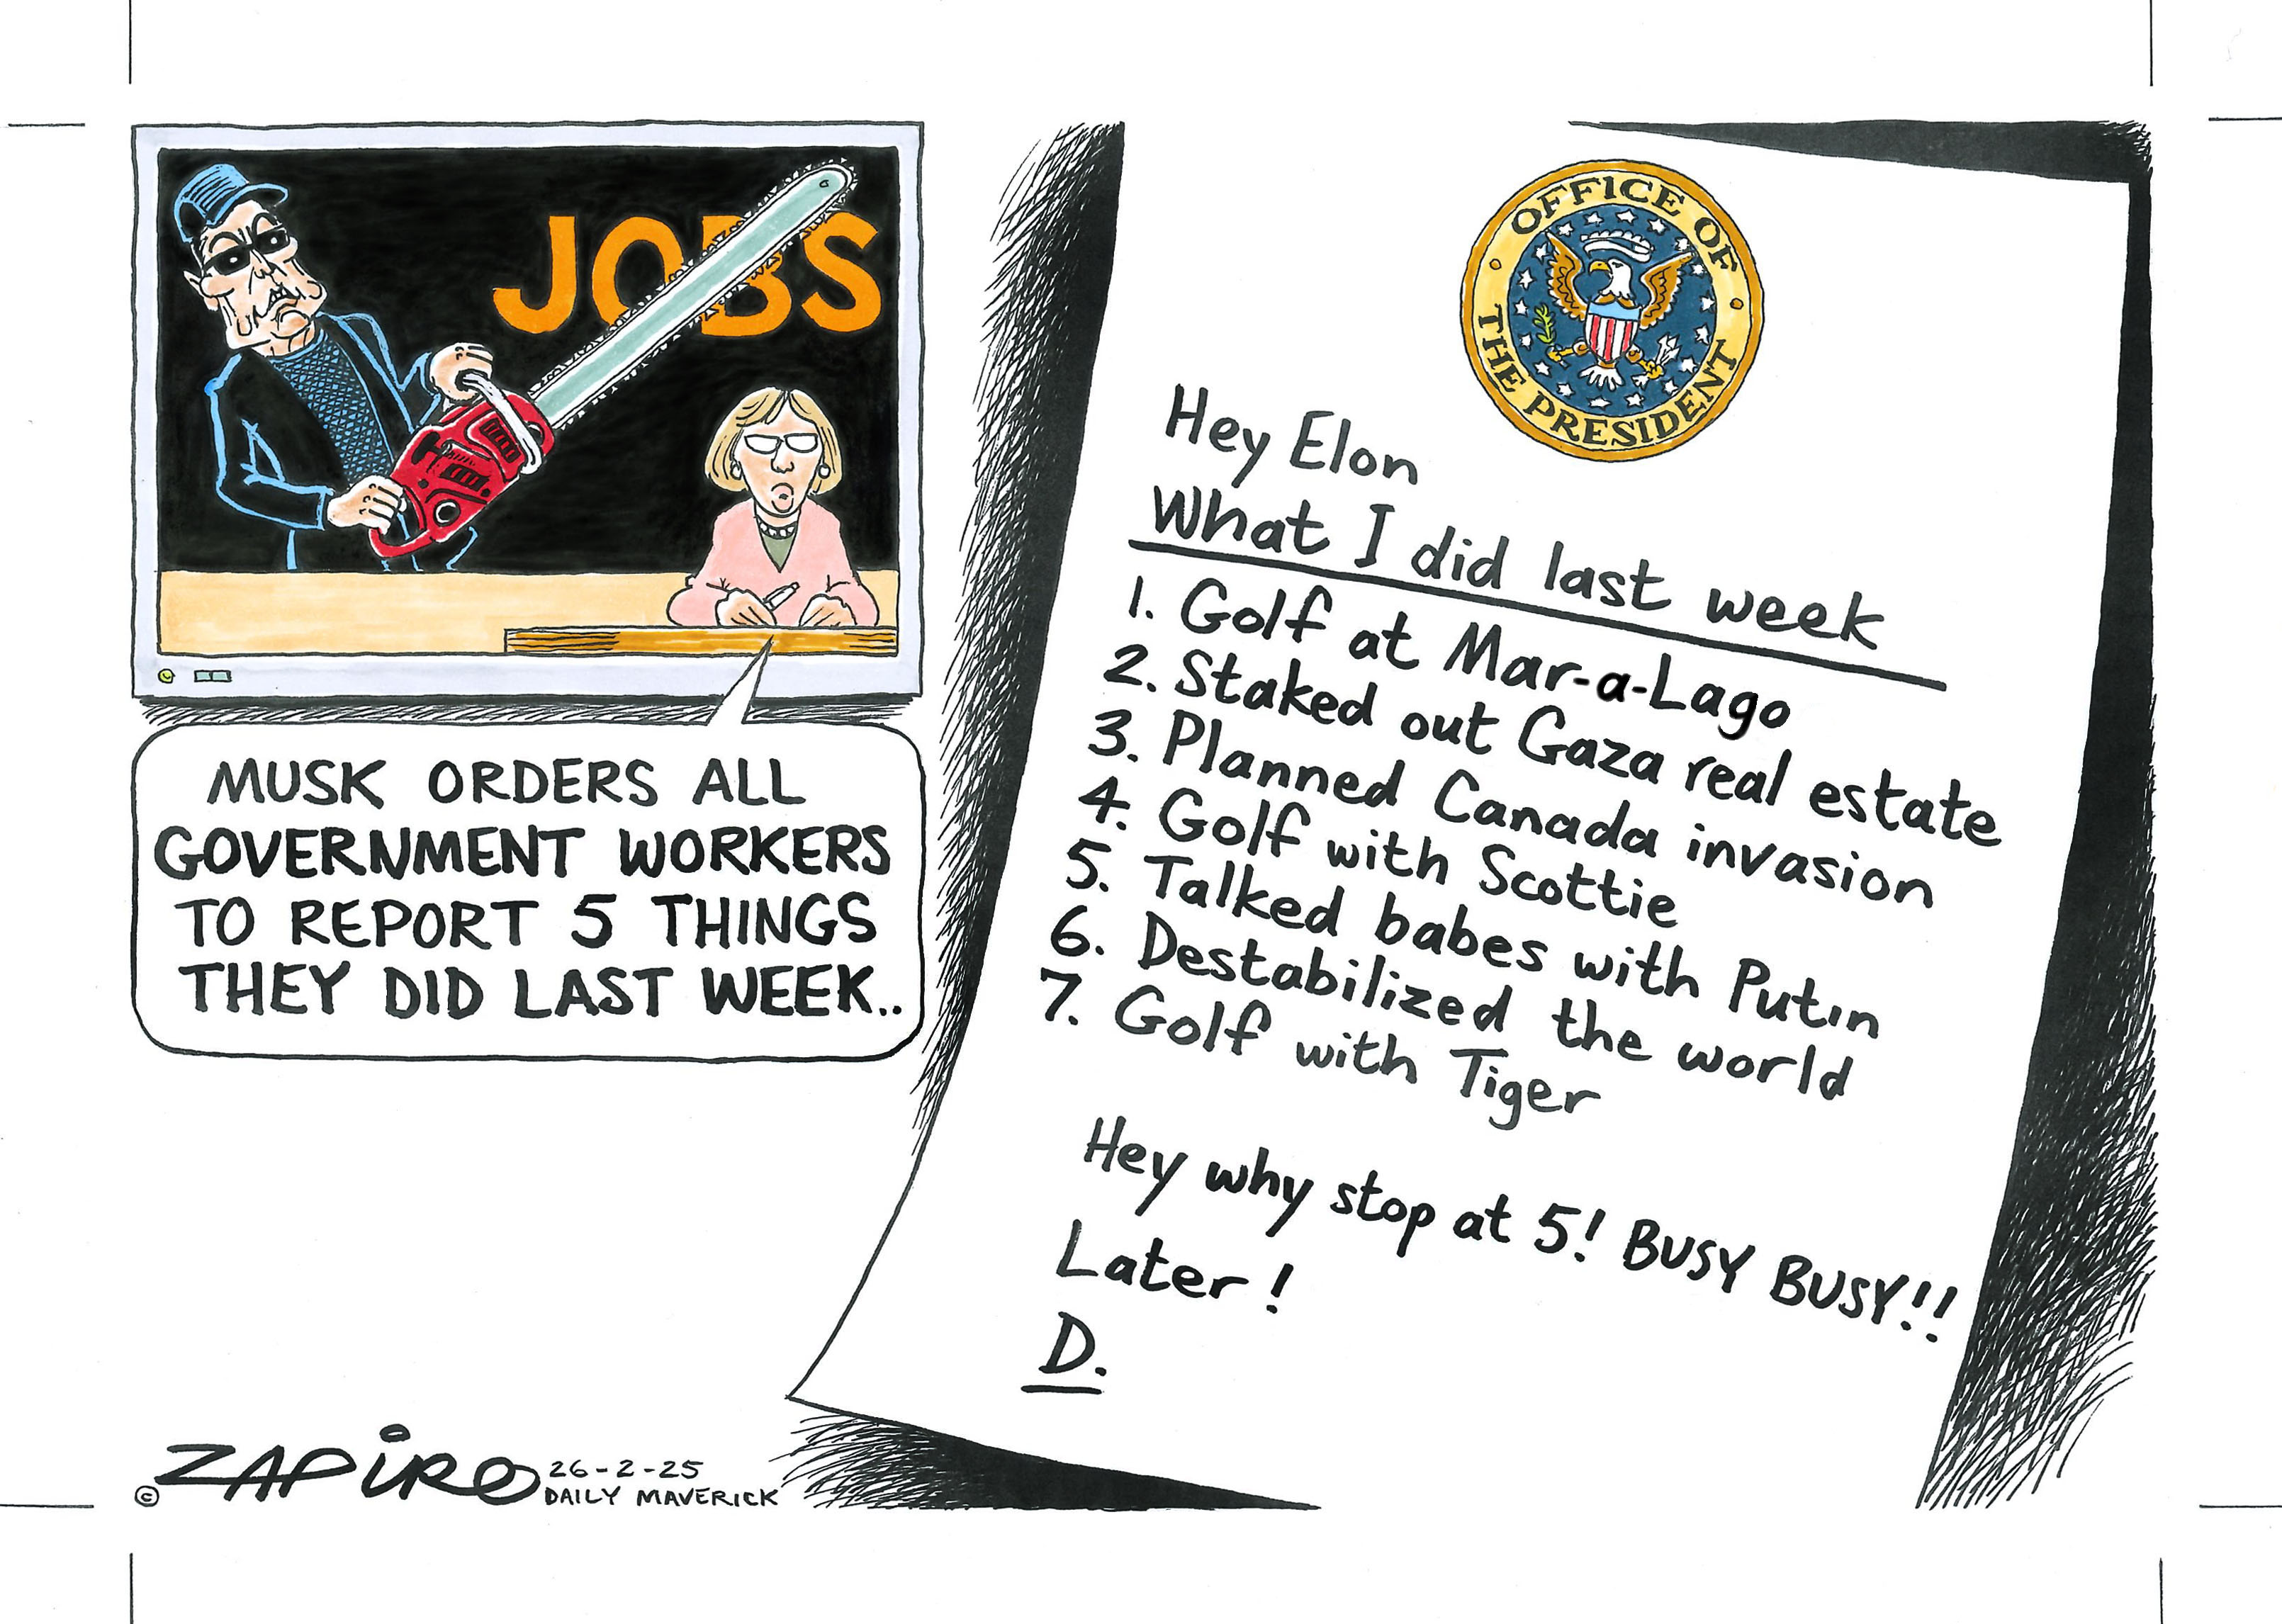 JOBS
MUSK ORDERS ALL
GOVERNMENT WORKERS
TO REPORT 5 THINGS
THEY DID LAST WEEK..
OFFICE OF
THE PRESIDENT
Hey Elon
What I did last week
1. Golf at Mar-a-Lago
2. Staked out Gaza real estate
3. Planned Canada invasion
4. Golf with Scottie
5. Talked babes with Putin
6. Destabilized the world
7. Golf with Tiger
Hey why stop at 5! BUSY BUSY!!
Later!
D.
© ZAPIRO 26-2-25
DAILY MAVERICK